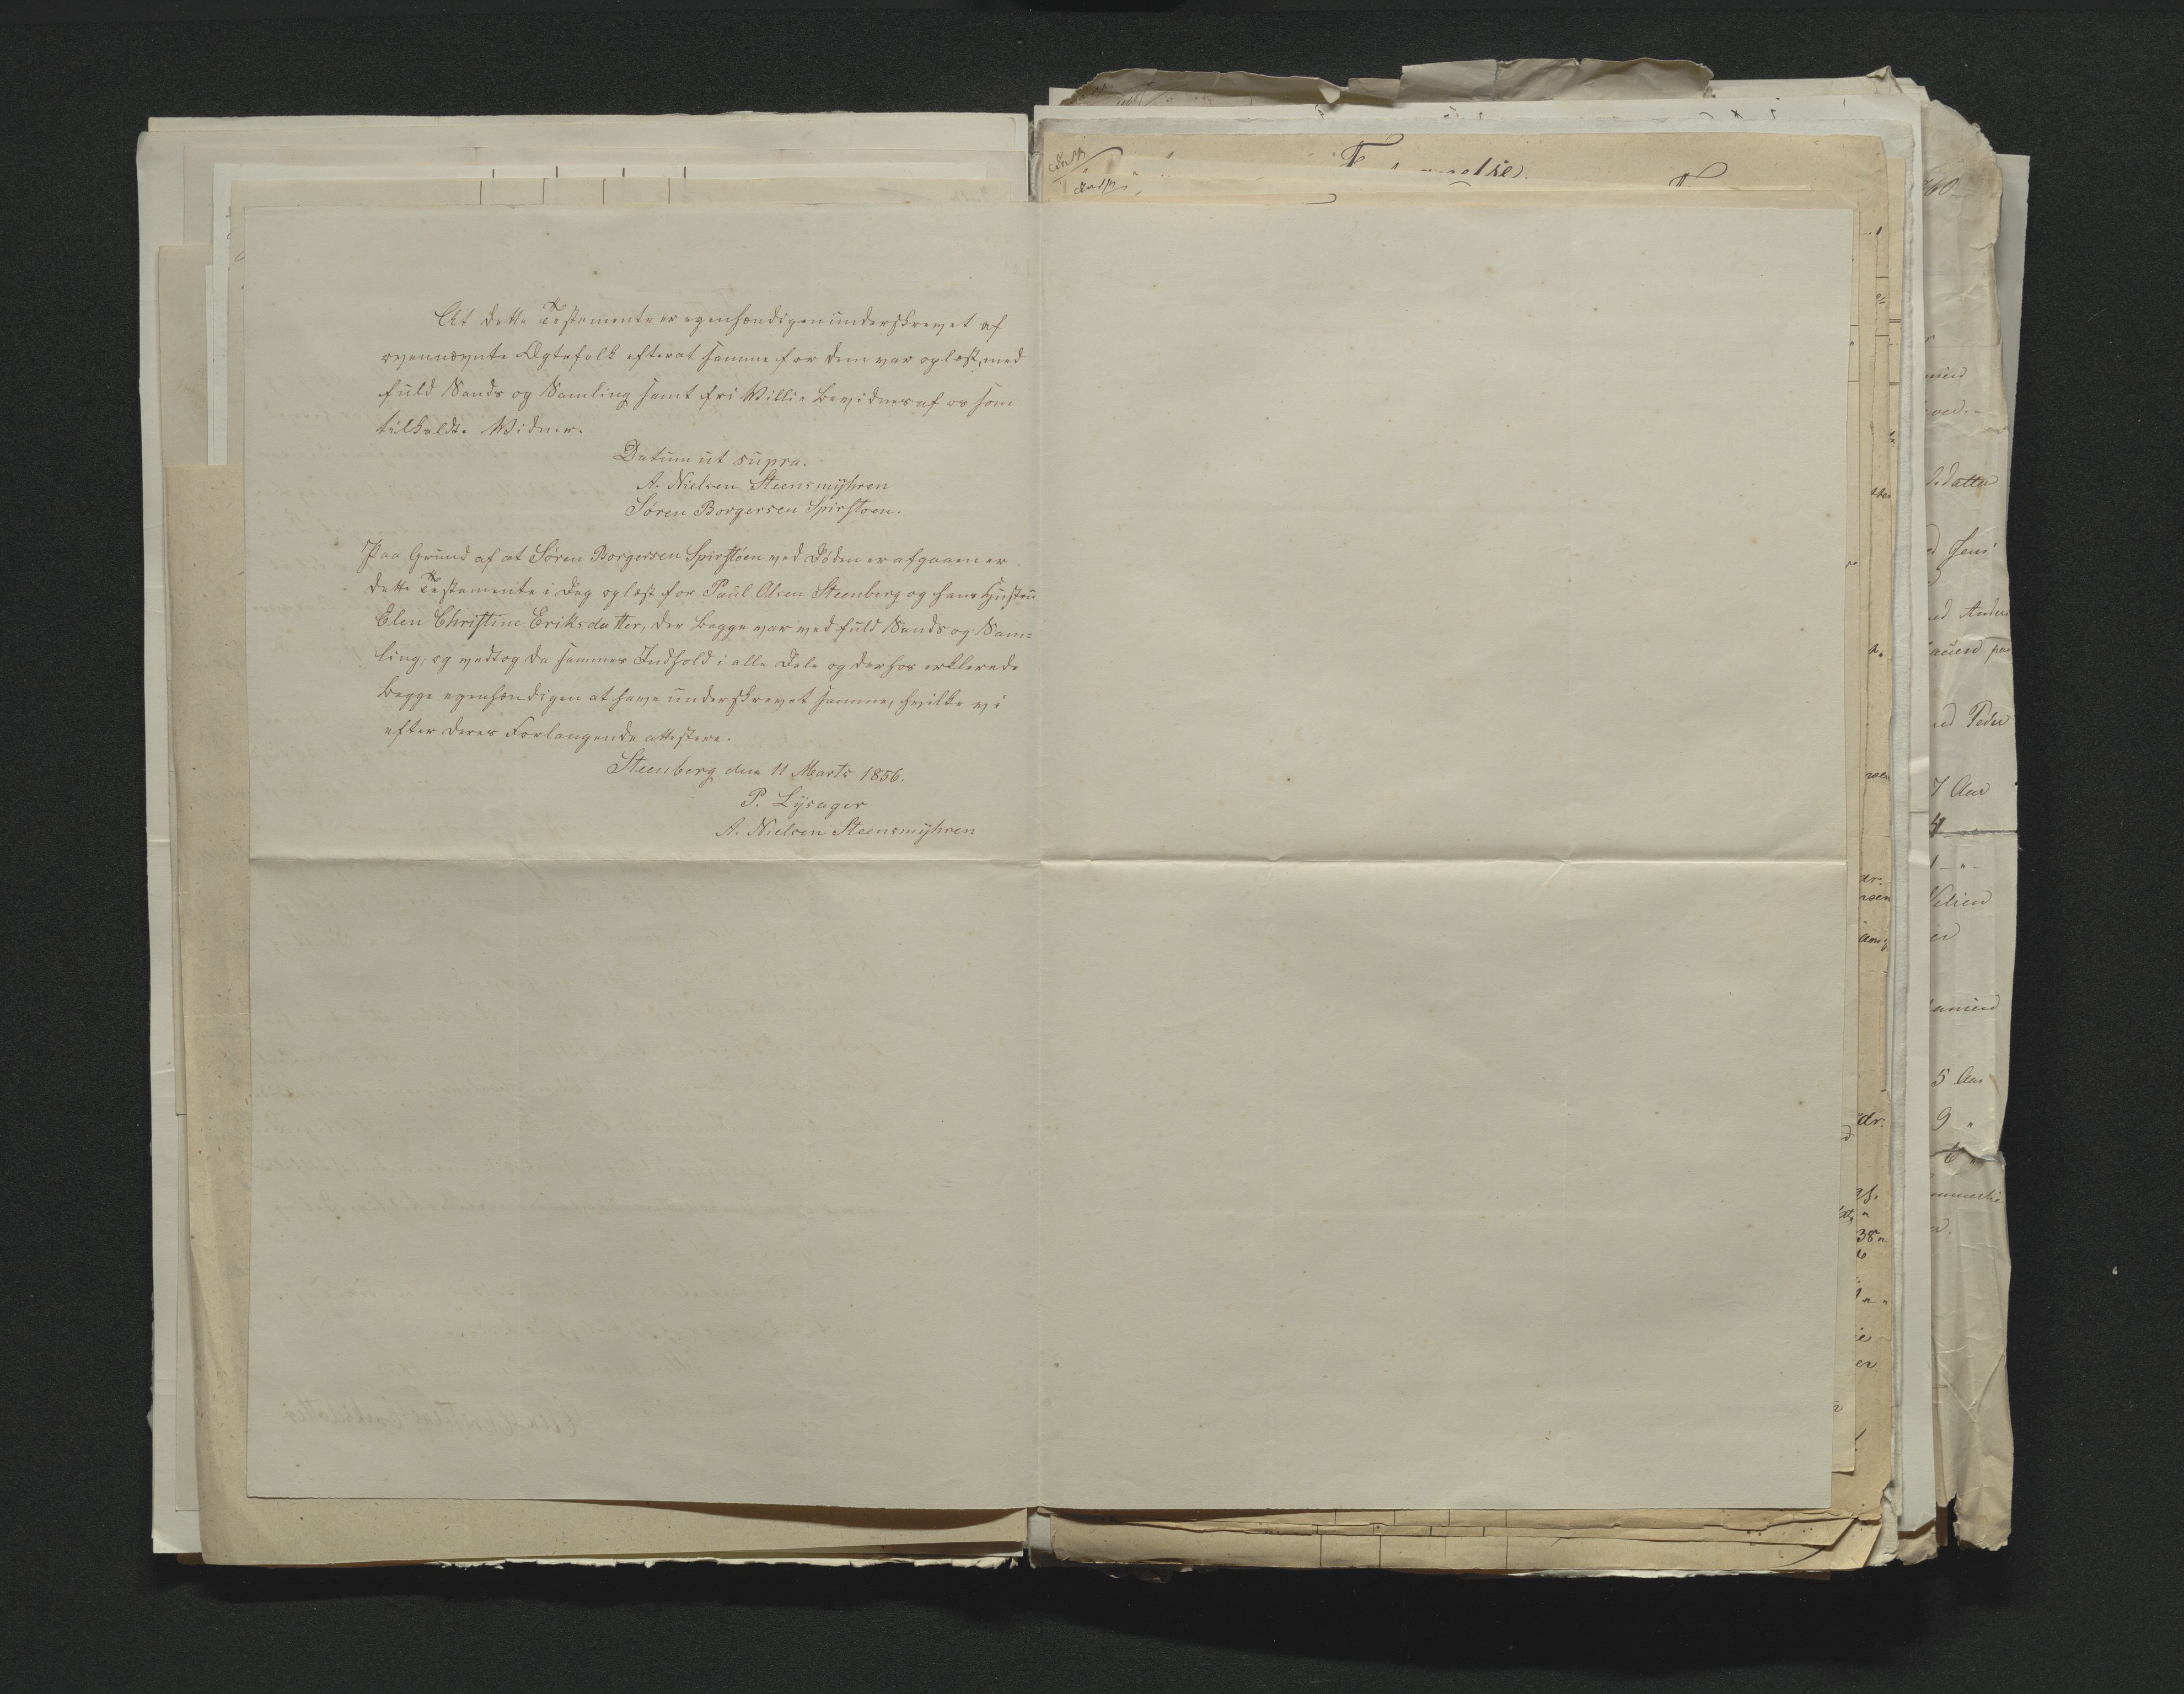 At dette Testamente er egenhændigen underskrevet af
ovennævnte Ægtefolk efterat samme for dem var oplæst, med
fuld Sands og Samling samt fri Villie bevidnes af os som
tilkaldte Vidner.
Datum ut supra.
A. Nielsen Steensmÿhren
Søren Borgersen Spirstoen.
Paa Grund af at Søren Borgersen Spirstoen ved Døden er afgaaen er
dette Testamente i Dag oplæst for Paul Olsen Steenberg og hans Hustru
Elen Christine Eriksdatter, der begge var ved fuld Sands og Sam=
ling, og vedtog da sammes Indhold i alle Dele og derhos erklærede
begge egenhændigen at have underskrevet samme, hvilke vi
efter deres Forlangende attestere.
Steenberg den 11 Marts 1856.
P. Lÿsager
A. Nielsen Steensmÿhren